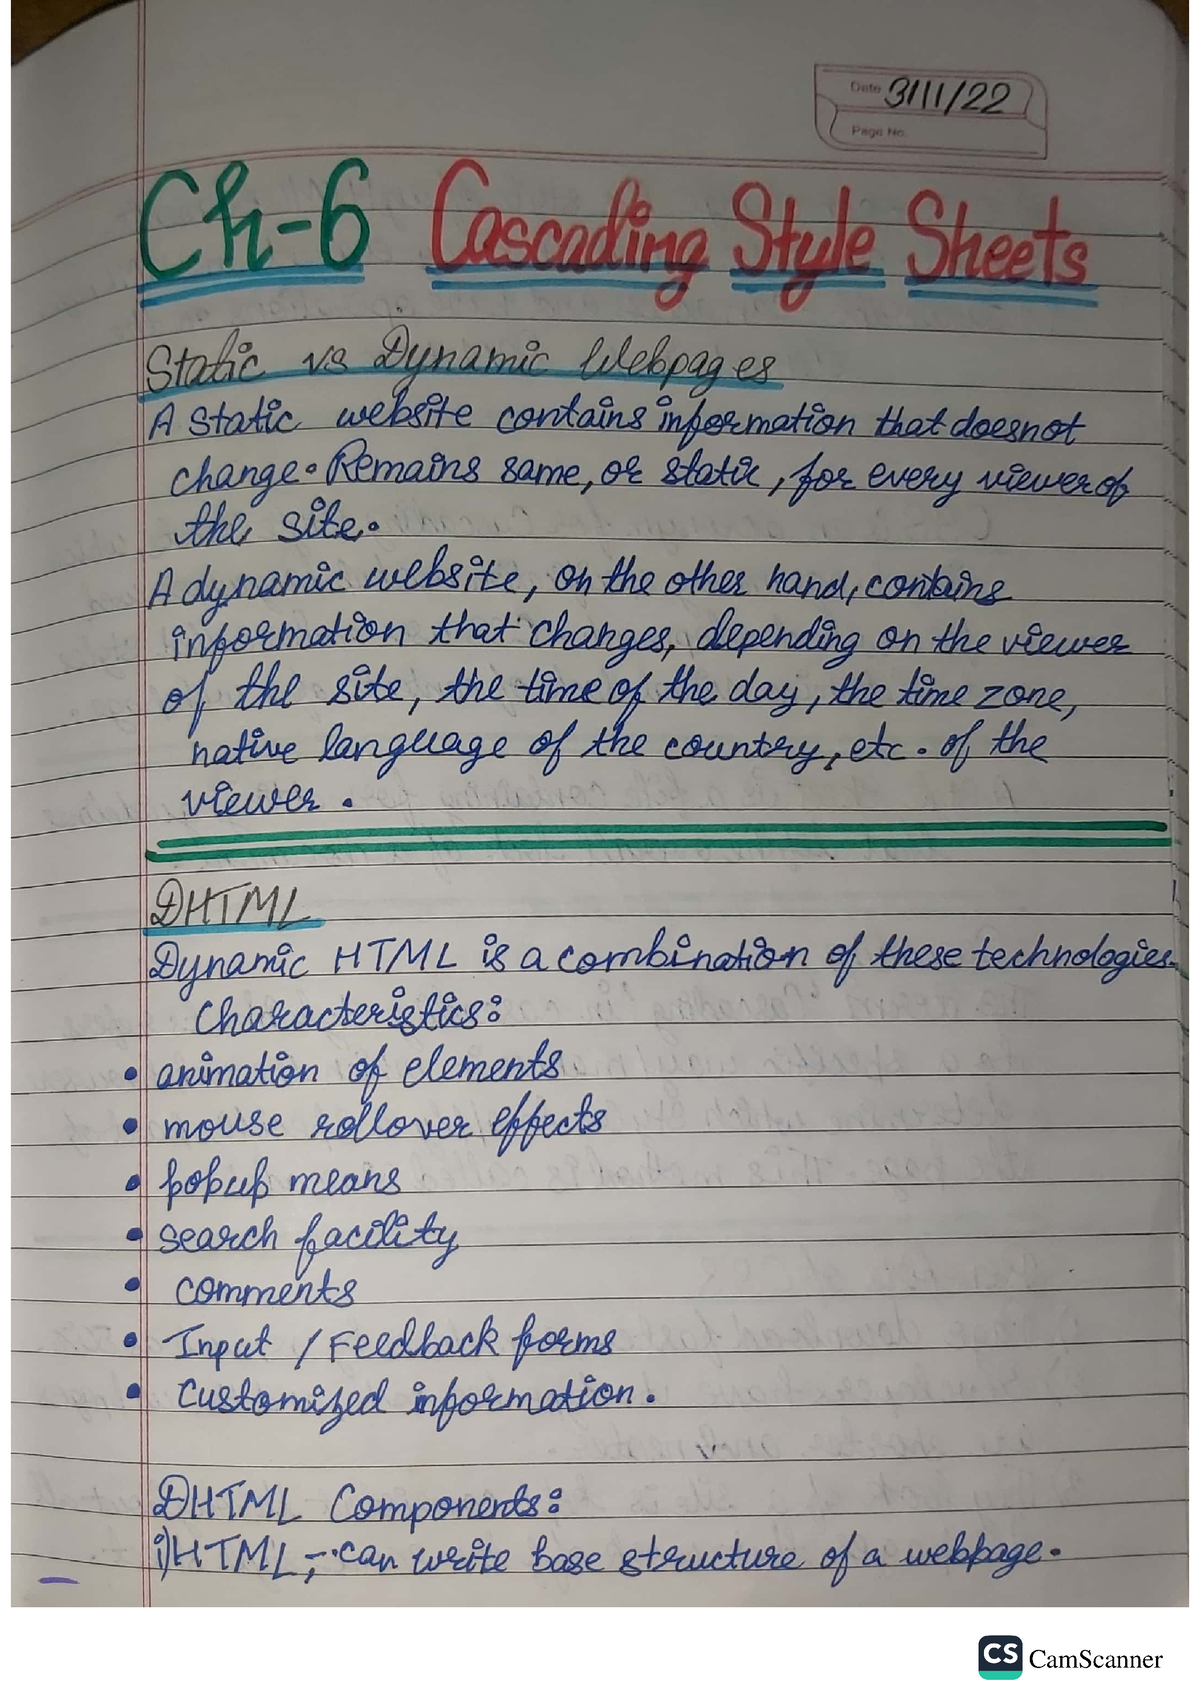 Date 31/1/22
Page No.
Ch-6 Cascading Style Sheets
Static vs Dynamic Webpages
A static website contains information that doesnot
change. Remains same, or static, for every viewer of
the site.
A dynamic website, on the other hand, contains
information that changes, depending on the viewer
of the site, the time of the day, the time zone,
native language of the country, etc. of the
viewer.
DHTML
Dynamic HTML is a combination of these technologies.
Characteristics:
• animation of elements
• mouse rollover effects
• popup means
• search facility
• comments
• Input / Feedback forms
• Customized information.
DHTML Components:
i) HTML;- can write base structure of a webpage.
CS CamScanner